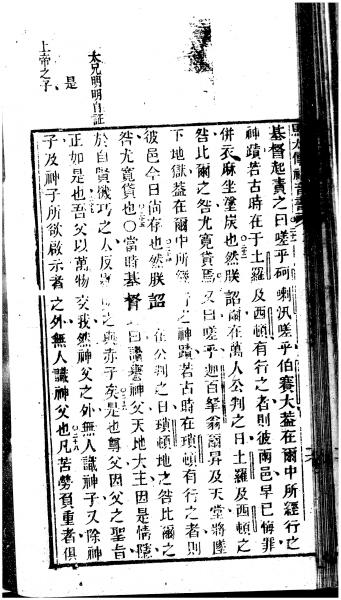 馬太傳福音書
基督起責之曰嗟乎砢喇汛嗟乎伯賽大蓋在爾中所經行之
神蹟若古時在于土羅及西頓有行之者則彼兩邑早已悔罪
併衣麻坐塗炭也然朕詔爾在萬人公判之日土羅及西頓之
咎比爾之咎尤寬貸焉又曰嗟乎迦百拏翁爾昇及天堂將墜
下地獄蓋在爾中所經行之神蹟若古時在瑣頓有行之者則
彼邑今日尚存也然朕詔在公判之日瑣頓地之咎比爾之
咎尤寬貸也〇當時基督曰讚謝神父天地大主因是情隱
於自賢微巧之人反之與赤子矣是也尊父因父之聖旨
正如是也吾父以萬物交我然神父之外無人識神子又除神
子及神子所欲啟示者之外無人識神父也凡苦勞負重者俱
太兄明明自証
是
上帝之子